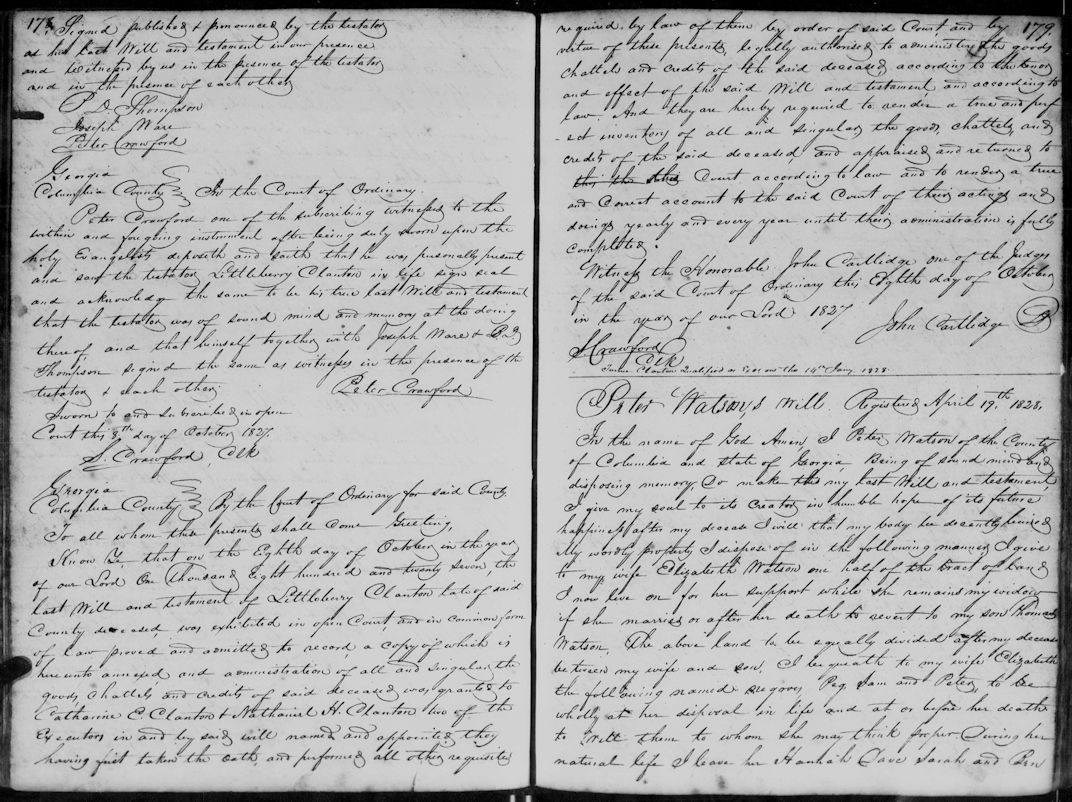 178
Signed published & pronounced by the testator
as his last Will and testament in our presence
and Witnessed by us in the presence of the testator
and in the presence of each other
P. D. Thompson
Joseph Ware
Peter Crawford
Georgia
Columbia County In the Court of Ordinary.
Peter Crawford one of the subscribing witnesses to the
within and foregoing instrument after being duly sworn upon the
holy Evangelists deposeth and saith that he was personally present
and saw the testator Littleberry Clanton in life sign seal
and acknowledge the same to be his true last Will and testament
that the testator was of sound mind and memory at the doing
thereof, and that himself together with Joseph Ware &
Thompson signed the same as witnesses in the presence of the
testator & each other
Peter Crawford
Sworn to and subscribed in open
Court this 8th day of October 1827.
S. Crawford, Clk
Georgia
Columbia County By the Court of Ordinary for said County
To all whom these presents shall come Greeting,
Know Ye that on the Eighth day of October in the year
of our Lord One thousand Eight hundred and twenty seven, the
last Will and testament of Littleberry Clanton late of said
County deceased, was exhibited in open Court, and in common form
of law proved and admitted to record a copy of which is
here unto annexed and administration of all and singular the
goods chattels and credits of said deceased was granted to
Catharine E Clanton & Nathaniel H Clanton two of the
Executors in and by said will named and appointed they
having first taken the oath and performed all other requisites
179
required by law of them by order of said Court and by
virtue of these presents legally authorised to administer the goods
chattels and credits of the said deceased, according to the tenor
and effect of the said Will and testament and according to
law. And they are hereby required to render a true and perf
-ect inventory of all and singular the goods chattels and
credits of the said deceased and appraised and returned to
Court according to law and to render a true
and correct account to the said Court of their actings and
doings yearly and every year until their administration is fully
completed.
Witness the Honorable John Cartlidge one of the Judges
of the said Court of Ordinary this Eighth day of October
in the year of our Lord 1827
John Cartlidge
S Crawford
Clk
Clanton Qualified as Exor on the 14th Jany. 1828.
Peter Watson's Will Registered April 19th 1828.
In the name of God Amen I Peter Watson of the County
of Columbia and state of Georgia Being of sound mind and
disposing memory do make this my last Will and testament
I give my soul to its Creator in humble hope of its future
happiness after my decease I will that my body be decently buried
My wordly property I dispose of in the following manner, I give
to my wife Elizabeth Watson one half of the tract of Land
I now live on for her support while she remains my widow
if she marries or after her death to revert to my son Thomas
Watson, The above land to be equally divided after my decease
between my wife and son. I bequeath to my wife Elizabeth
the following named negroes, Peg Sam and Peter, to be
wholly at her disposal in life and at or before her death
to Will them to whom she may think proper During her
natural life I leave her Hannah Dave Sarah and Ben